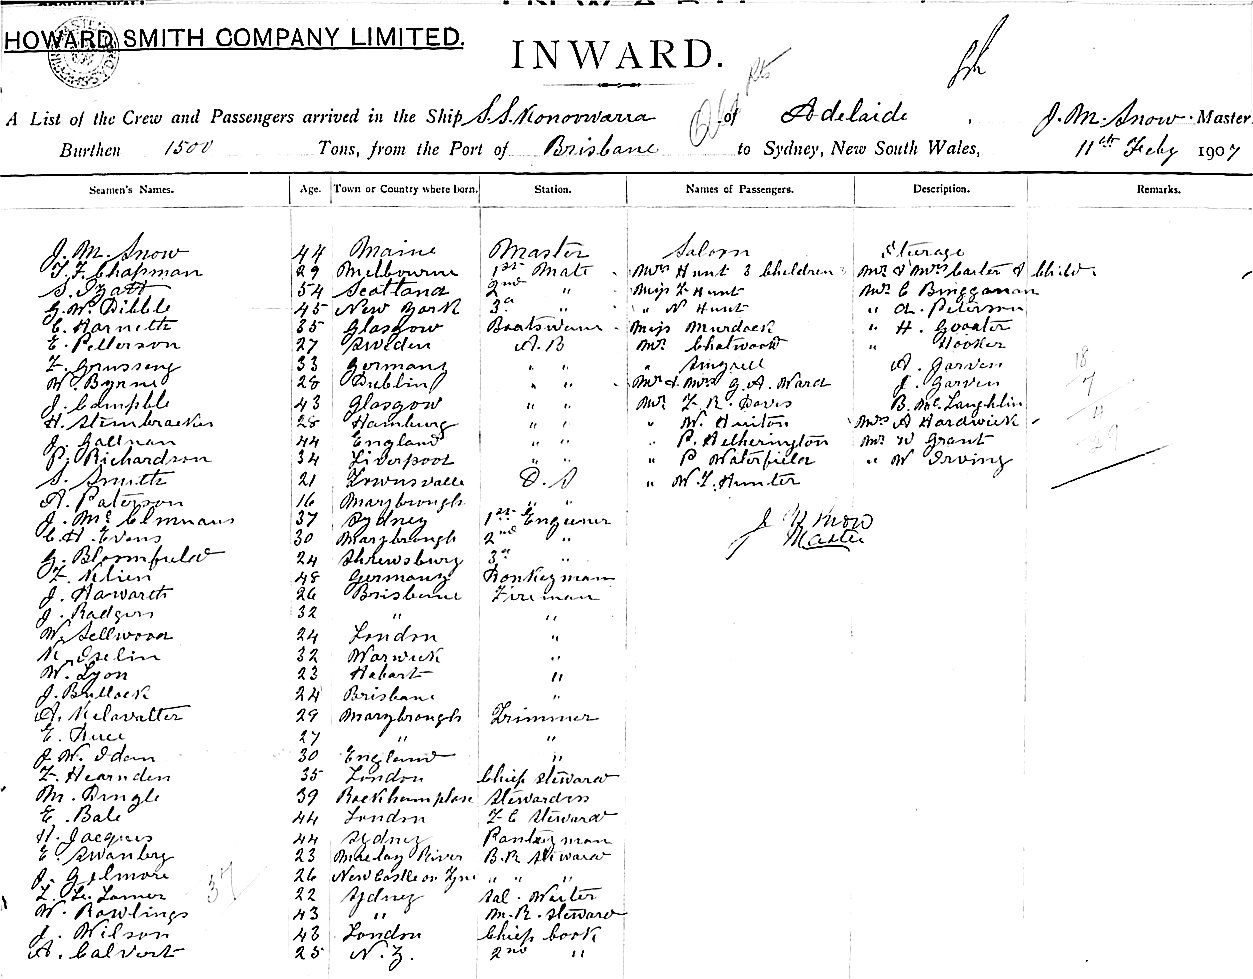 HOWARD SMITH COMPANY LIMITED.
INWARD.
A List of the Crew and Passengers arrived in the Ship S.S. Konoowarra of Adelaide, J. M. Snow Master
Burthen 1500 Tons, from the Port of Brisbane to Sydney, New South Wales, 11th Feby 1907
Seamen's Names. Age. Town or Country where born. Station. Names of Passengers. Description. Remarks.
J. M. Snow 44 Maine Master Saloon Sterage
T. F. Chapman 29 Melbourne 1st Mate Mrs Hunt 3 Children Mr & Mrs Carter & Child
S. 54 Scotland 2nd " Miss F Hunt Mr C Binganan
G. W. Dibble 45 New York 3rd " N Hunt " A. Peterson
C. Harnett 35 Glasgow Boatswain Miss Murdock " H.
E. Petterson 27 Sweden A B Mr Chatwood " Hooker
33 Germany " " " A. Garven
W. Byrne 28 Dublin " " Mr & Mrs G. A. Ward J. Garven
J. Campble 43 Glasgow " " Mr F. R. Davis B. McLaughlin
H. 28 Hamburg " " " W. Huston Mrs A Hardwick
J. 44 England " " " P. Hetherington Mr W Grant
P. Richardson 34 Liverpool " " " P Waterfield " W Irving
S. Smith 21 Townsvalle D. S " W. F. Hunter
A. Paterson 16 Marybrough " "
J. 37 Sydney 1st Engineer J M Snow
C. H. Evens 30 Marybrough 2nd " Master
G. Bloomfield 24 Shrewsbury 3rd "
F. Klien 48 Germany Donkeyman
J. Hawarth 26 Brisbane Fireman
J. Rodgers 32 " "
W. Sellwood 24 London "
K. Iselin 32 Warwick "
W. Lyon 23 Hobart "
J. Bullock 24 Brisbane "
A. 29 Marybrough Trimmer
E. 27 " "
J. W. Odam 30 England "
F. Hearnden 35 London Chief Steward
M. Dingle 39 Rockhampton Stewardess
E. Bale 44 London F. C Steward
H. Jacques 44 Sydney Pantryman
E. Swanberg 23 Macleay River B. R Steward
J. Gilmore 26 New Castle on Tyne " " "
22 Sydney Sal. Waiter
W. Rawlings 43 " M. R. Steward
J. Wilson 43 London Chief Cook
A. Calvert 25 N. Z. 2nd "
18
7
4
29
37